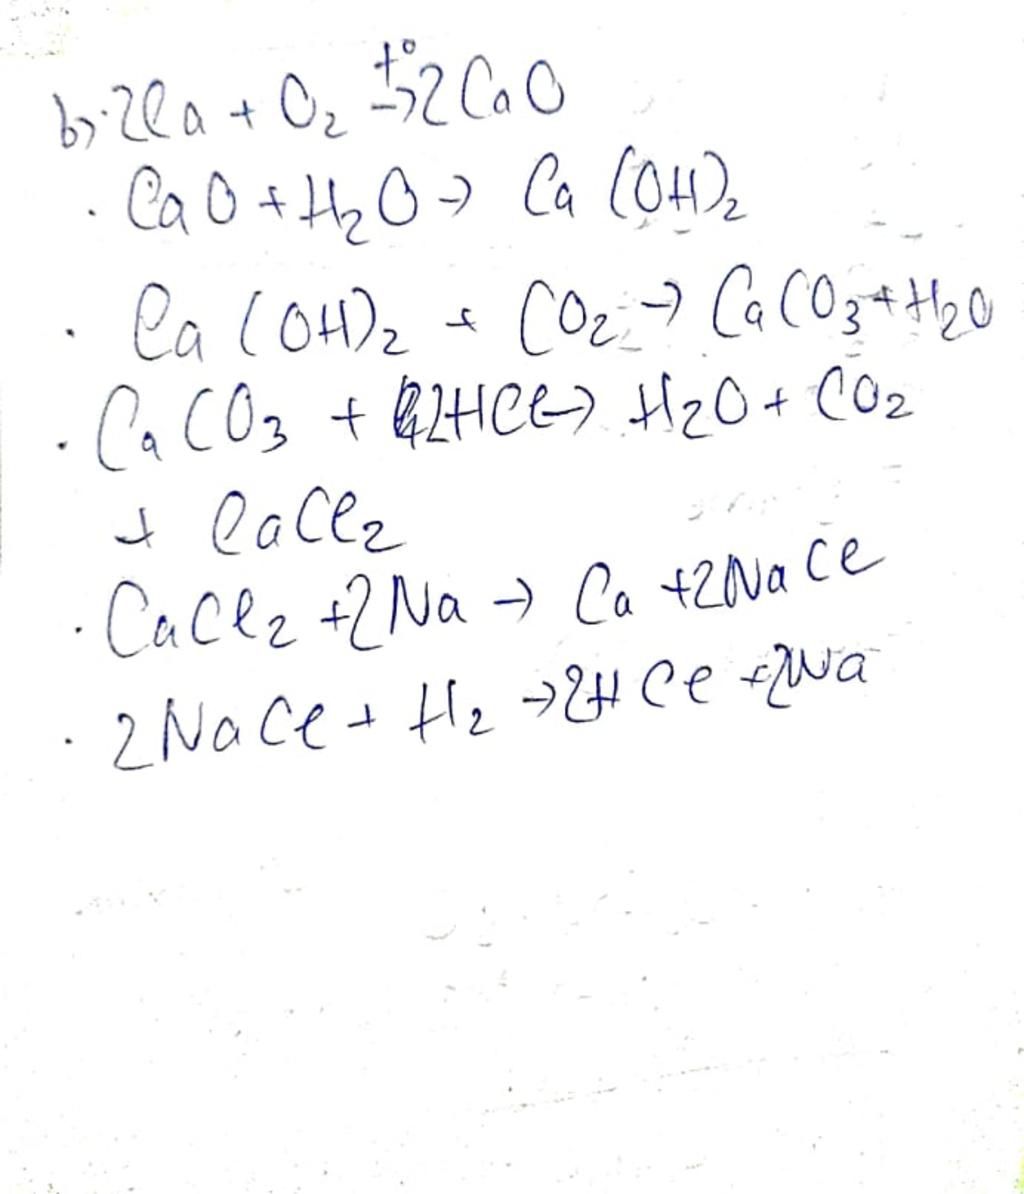 b) 2Ca + O₂ t°→ 2CaO
· CaO + H₂O → Ca(OH)₂
· Ca(OH)₂ + CO₂ → CaCO₃ + H₂O
· CaCO₃ + 2HCl → H₂O + CO₂
+ CaCl₂
· CaCl₂ + 2Na → Ca + 2NaCl
· 2NaCl + H₂ → 2HCl + 2Na